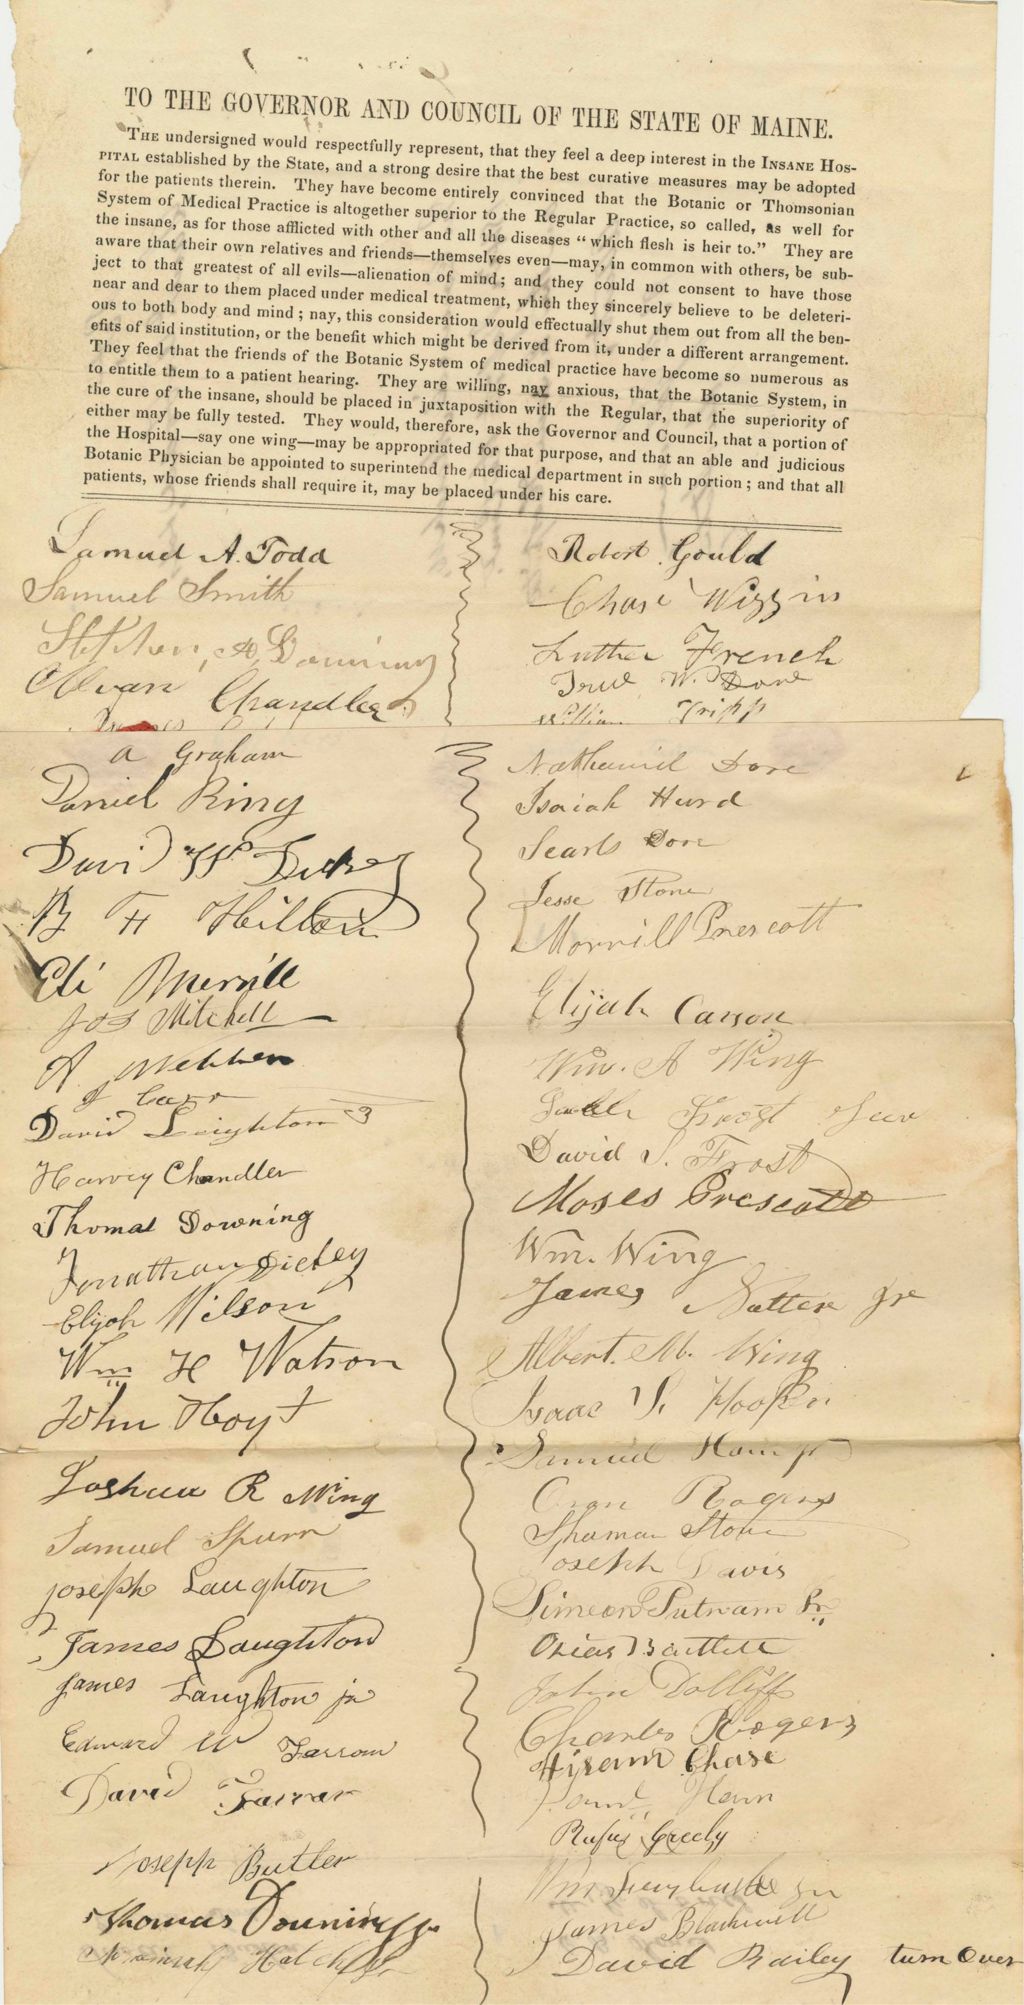 TO THE GOVERNOR AND COUNCIL OF THE STATE OF MAINE.
THE undersigned would respectfully represent, that they feel a deep interest in the INSANE HOS-
PITAL established by the State, and a strong desire that the best curative measures may be adopted
for the patients therein. They have become entirely convinced that the Botanic or Thomsonian
System of Medical Practice is altogether superior to the Regular Practice, so called, as well for
the insane, as for those afflicted with other and all the diseases "which flesh is heir to." They are
aware that their own relatives and friends—themselves even—may, in common with others, be sub-
ject to that greatest of all evils—alienation of mind; and they could not consent to have those
near and dear to them placed under medical treatment, which they sincerely believe to be deleteri-
ous to both body and mind; nay, this consideration would effectually shut them out from all the ben-
efits of said institution, or the benefit which might be derived from it, under a different arrangement.
They feel that the friends of the Botanic System of medical practice have become so numerous as
to entitle them to a patient hearing. They are willing, nay anxious, that the Botanic System, in
the cure of the insane, should be placed in juxtaposition with the Regular, that the superiority of
either may be fully tested. They would, therefore, ask the Governor and Council, that a portion of
the Hospital—say one wing—may be appropriated for that purpose, and that an able and judicious
Botanic Physician be appointed to superintend the medical department in such portion; and that all
patients, whose friends shall require it, may be placed under his care.
Samuel A. Todd
Samuel Smith
Stephen A. Downing
Chandler
A Graham
Daniel Ring
David W
B H Hilton
Eli Merrill
Jos Mitchell
A Webber
J Carr
David Leighton 3
Harvey Chandler
Thomas Downing
Jonathan Dickey
Elijah Wilson
Wm H Watson
John Hoyt
Joshua R Wing
Samuel Spurr
Joseph Laughton
James Laughton
James Laughton jr
Edward W Farrow
David Farrar
Joseph Butler
Thomas Downing jr
Hatch
Robert Gould
Chase Wiggin
Luther French
True W. Dore
William Tripp
Nathaniel Dore
Isaiah Hurd
Searls Dore
Jesse Stone
Morrill Prescott
Elijah Carson
Wm. A Wing
Frost
David S. Frost
Moses Prescott
Wm. Wing
James Nutter Jr
Albert M. Wing
Isaac S. Hooper
Samuel Ham jr
Oran Rogers
Stone
Joseph Davis
Simeon Putnam Jr
Osias Bartlett
John Dolliff
Charles Rogers
Hiram Chase
Ham
Rufus Greely
Wm
James Blackwell
David Bailey turn Over